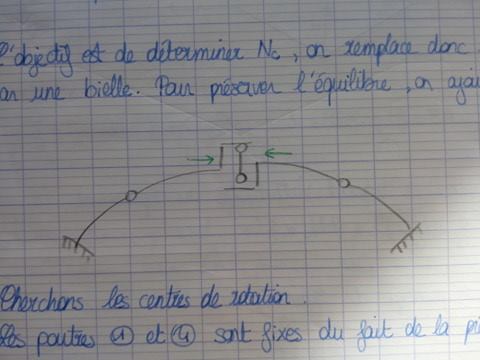 l'objectif est de déterminer Nc, on remplace donc
par une bielle. Pour préserver l'équilibre, on ajou
Cherchons les centres de rotation.
Les poutres ① et ④ sont fixes du fait de la pr